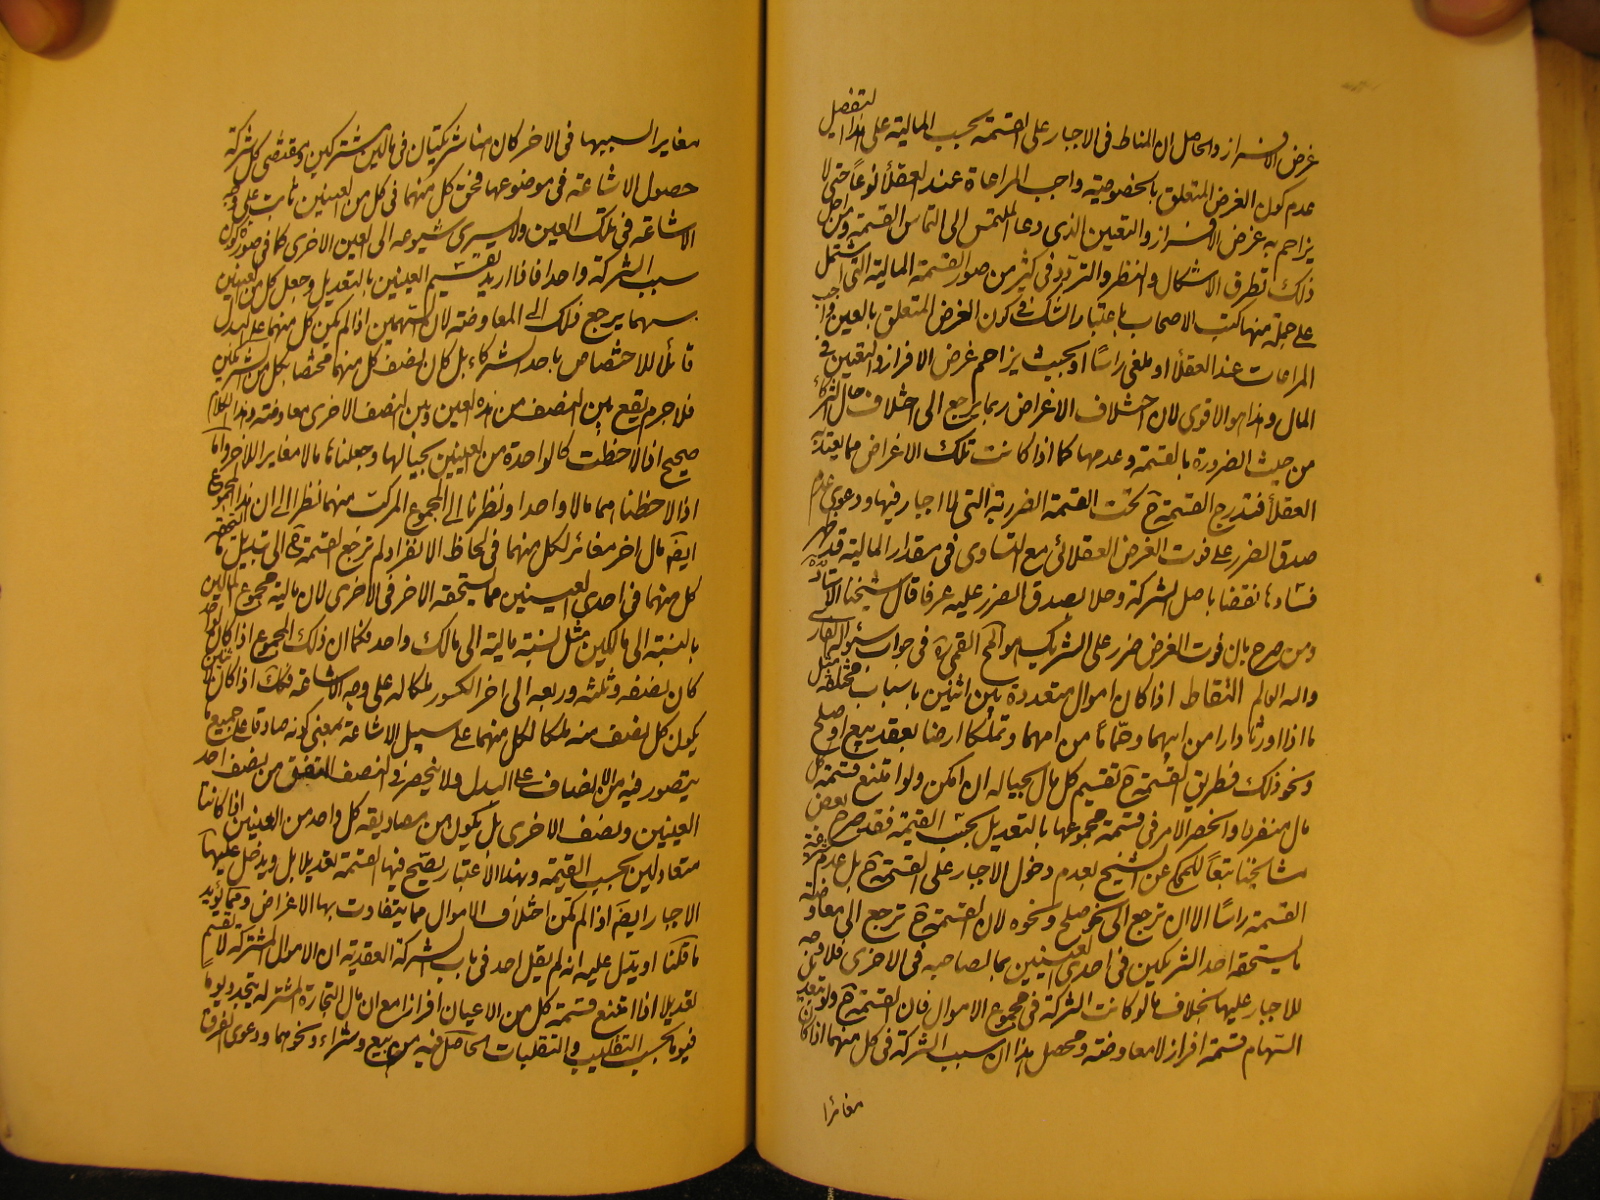 غرض الافراز والحاصل ان المناط فى الاجبار على القسمة بحسب المالية على هذا التفصيل
عدم كون الغرض المتعلق بالخصوصية واجب المراعاة عند العقلاء نوعاً حتى لا
يزاحم به غرض الافراز والتعين الذى دعا الملتمس الى التماس القسمة ومن اجل
ذلك تطرق الاشكال والنظر والتردد فى كثير من صور القسمة المالية التى اشتمل
على جملة منها كتب الاصحاب باعتبار الشك فى كون الغرض المتعلق بالعين واجب
المراعات عند العقلاء او ملغى راسًا او بحيث يزاحم غرض الافراز والتعين فى
المال وهذا هو الاقوى لان اختلاف الاغراض ربما يرجع الى اختلاف حال الشركاء
من حيث الضرورة بالقسمة وعدمها كما اذا كانت تلك الاغراض مما يعتد به
العقلاء فتدرج القسمة ح تحت القسمة الضررية التى لا اجبار فيها ودعوى عدم
صدق الضرر على فوت الغرض العقلائى مع التساوى فى مقدار المالية قد ظهر
فسادها نقضا باصل الشركة وحلا بصدق الضرر عليه عرفا قال شيخنا الاستاد
ومن صرح بان فوت الغرض ضرر على الشريك هو المحقق القمى ره فى جواب سئواله الفارسى
والله العالم التقاط اذا كان اموال متعددة بين اثنين باسباب مختلفة مثل
ما اذا اورثا دارا من ابيهما وحمّاماً من امهما وتملكا ارضا بعقد بيع او صلح
ونحو ذلك فطريق القسمة ح تقسيم كل مال بحياله ان امكن ولو امتنع قسمة كل
مال منفردا وانحصر الامر فى قسمة مجموعها بالتعديل بحسب القيمة فقد صرح بعض
مشايخنا تبعًا للمحكى عن الشيخ بعدم دخول الاجبار على القسمة ح بل عدم
القسمة راسًا الا ان ترجع الى نحو صلح ونحوه لان القسمة ح ترجع الى معاوضة
ما يستحقه احد الشريكين فى احدى العينين بما لصاحبه فى الاخرى فلا وجه
للاجبار عليها بخلاف ما لو كانت الشركة فى مجموع الاموال فان القسمة ح ولو بتعديل
السهام قسمة افراز لا معاوضة ومحصل هذا ان سبب الشركة فى كل منهما اذا كان
مغائرا
مغاير السببها فى الاخر كان هنا شركتان فى مالين مشتركين ومقتضى كل شركة
حصول الاشاعة فى موضوعها فحق كل منهما فى كل من العينين ثابت على
الاشاعة فى تلك العين ولا يسرى شيوعه الى العين الاخرى كما فى صورة كون
سبب الشركة واحدا فاذا اريد تقسيم العينين بالتعديل وجعل كل من العينين
سهما يرجع ذلك الى المعاوضة لان السهمين اذا لم يكن كل منهما على البدل
قابلا للاختصاص باحد الشركاء بل كان نصف كل منهما مختصا بكل من الشريكين
فلا جرم يقع بين النصف من هذه العين وبين النصف الاخرى معاوضة وهذا الكلام
صحيح اذا لاحظت كل واحدة من العينين بحيالها وجعلناها مالا مغاير اللاخر واما
اذا لاحظناهما مالا واحدا ونظرنا الى المجموع المركب منهما نظرا الى ان هذا المجموع
ايضا مال اخر مغائر لكل منهما فى لحاظ الانفراد لم ترجع القسمة ح الى تبديل ما استحقه
كل منهما فى احدى العينين مما يستحقه الاخر فى الاخرى لان مالية مجموع المالين
بالنسبة الى مالكين مثل نسبة مالية الى مالك واحد فكما ان ذلك المجموع اذا كان لواحد
كان نصفه وثلثه وربعه الى اخر الكسور ملكا له على وجه الاشاعة فكك اذا كان لاثنين
يكون كل نصف منه ملكا لكل منهما على سبيل الاشاعة بمعنى كونه صادقا على جميع ما
يتصور فيه من الانصاف على البدل ولا ينحصر فى النصف من نصف احد
العينين ونصف الاخرى بل يكون من مصاديقه كل واحد من العينين اذا كانتا
متعادلين بحسب القيمة وبهذا الاعتبار يصح فيها القسمة تعديلا بل ويدخل عليها
الاجبار ايضا اذا لم تكن اختلاف الاموال مما يتفاوت بها الاغراض ومما يؤيد
ما قلنا او يدل عليه انه لم يقل احد فى باب الشركة العقدية ان الاموال المشتركة لا تقسم
تعديلا اذا امتنع قسمة كل من الاعيان افرازا مع ان مال التجارة المشتركة يتجدد يوما
فيوما بحسب التقليب والتقلبات الحاصل فيه من بيع وشراء ونحوهما ودعوى الفرق